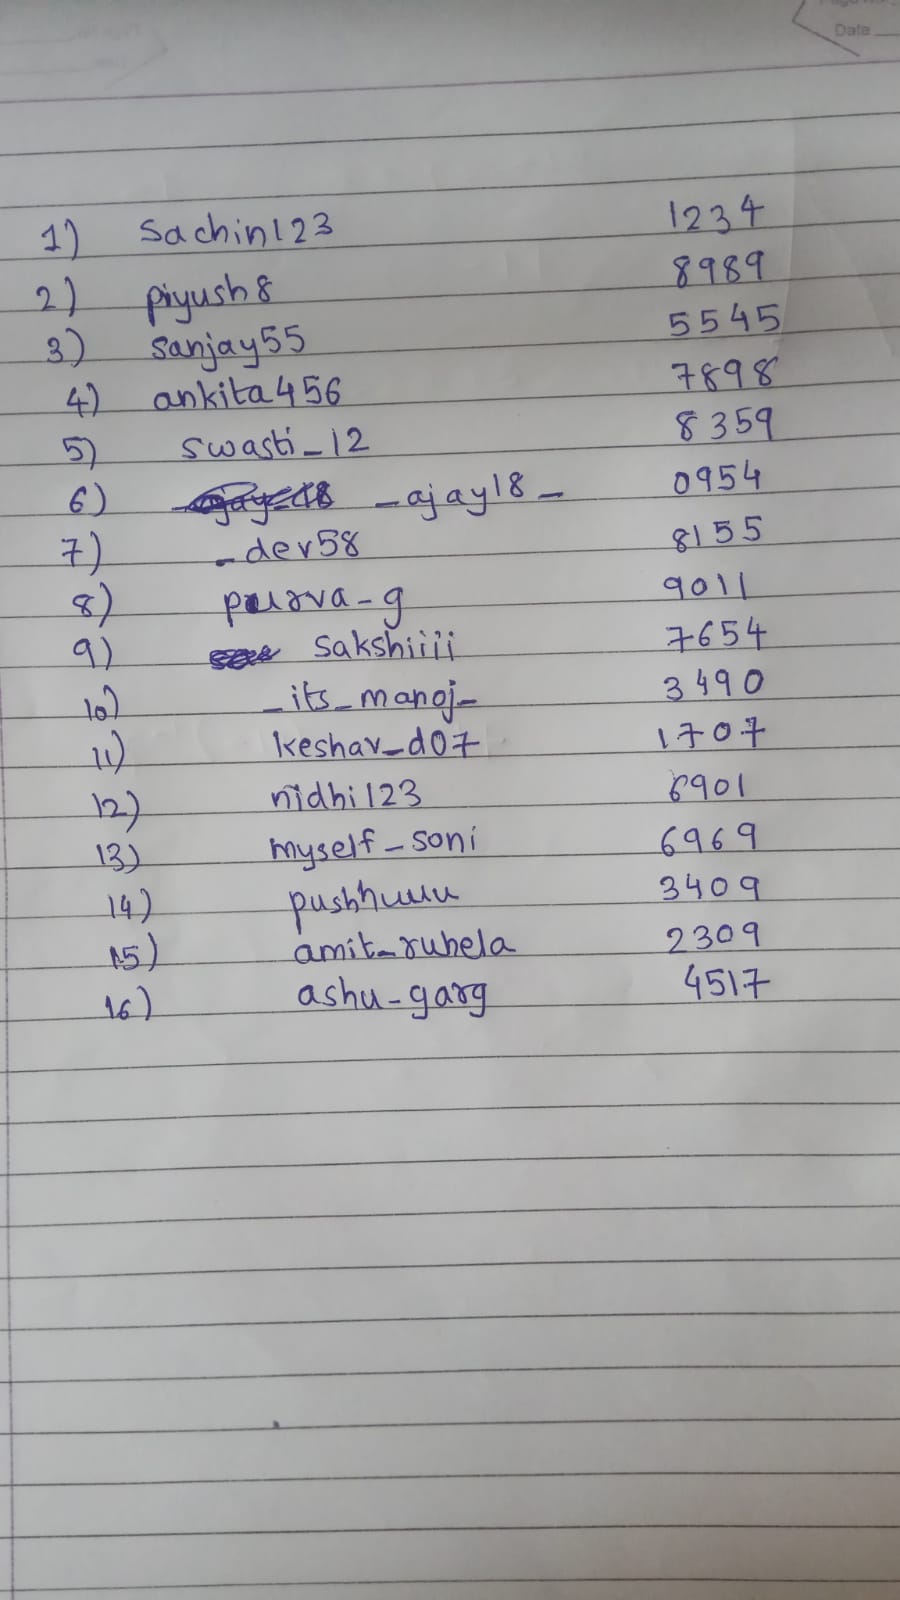 Date
1) Sachin123 1234
2) piyush8 8989
3) Sanjay55 5545
4) ankita456 7898
5) swasti_12 8359
6) _ajay18_ 0954
7) _dev58 8155
8) purva_g 9011
9) Sakshiiii 7654
10) _its_manoj_ 3490
11) keshav_d07 1707
12) nidhi123 6901
13) myself_soni 6969
14) pushhuuu 3409
15) amit_ruhela 2309
16) ashu_garg 4517